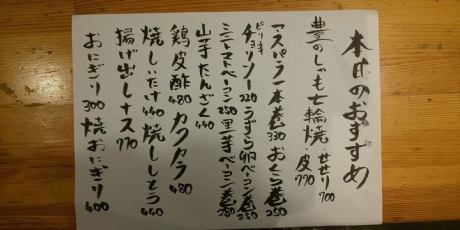 本日のおすすめ
豊のしゃも七輪焼・せせり700
皮770
アスパラ一本巻330 おくら巻250
ピリ辛
チョリソー220 うずら卵ベーコン巻250
ミニトマトベーコン250 里芋ベーコン巻280
山芋たんざく440
鶏皮酢480 カクカクラ480
焼しいたけ440 焼ししとう440
揚げ出しナス770
おにぎり300 焼おにぎり400